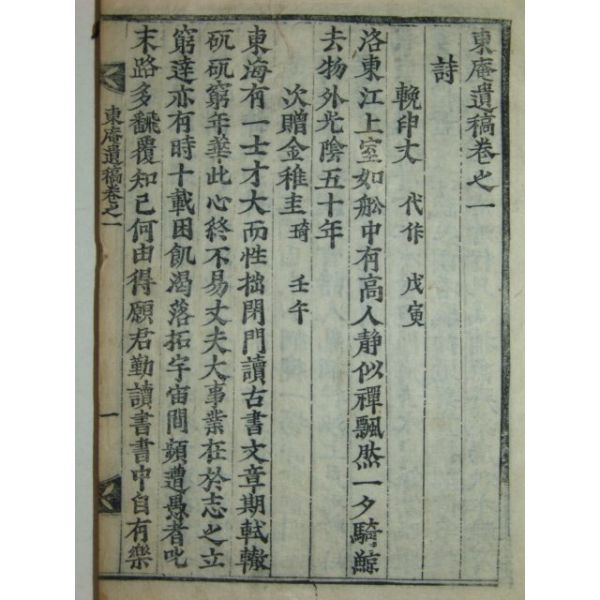 東庵遺稿卷之一
詩
輓印大 代作 戊寅
洛東江上室如舩中有高人静似禪飄然一夕騎鯨
去物外光陰五十年
次贈金稚圭琦 壬午
東海有一士才大而性拙閉門讀古書文章期軾轍
矻矻窮年華此心終不易丈夫大事業在於志之立
窮達亦有時十載困飢渴落拓宇宙間頻遭愚者叱
末路多飜覆知己何由得願君勤讀書書中自有樂
東庵遺稿卷之一
一